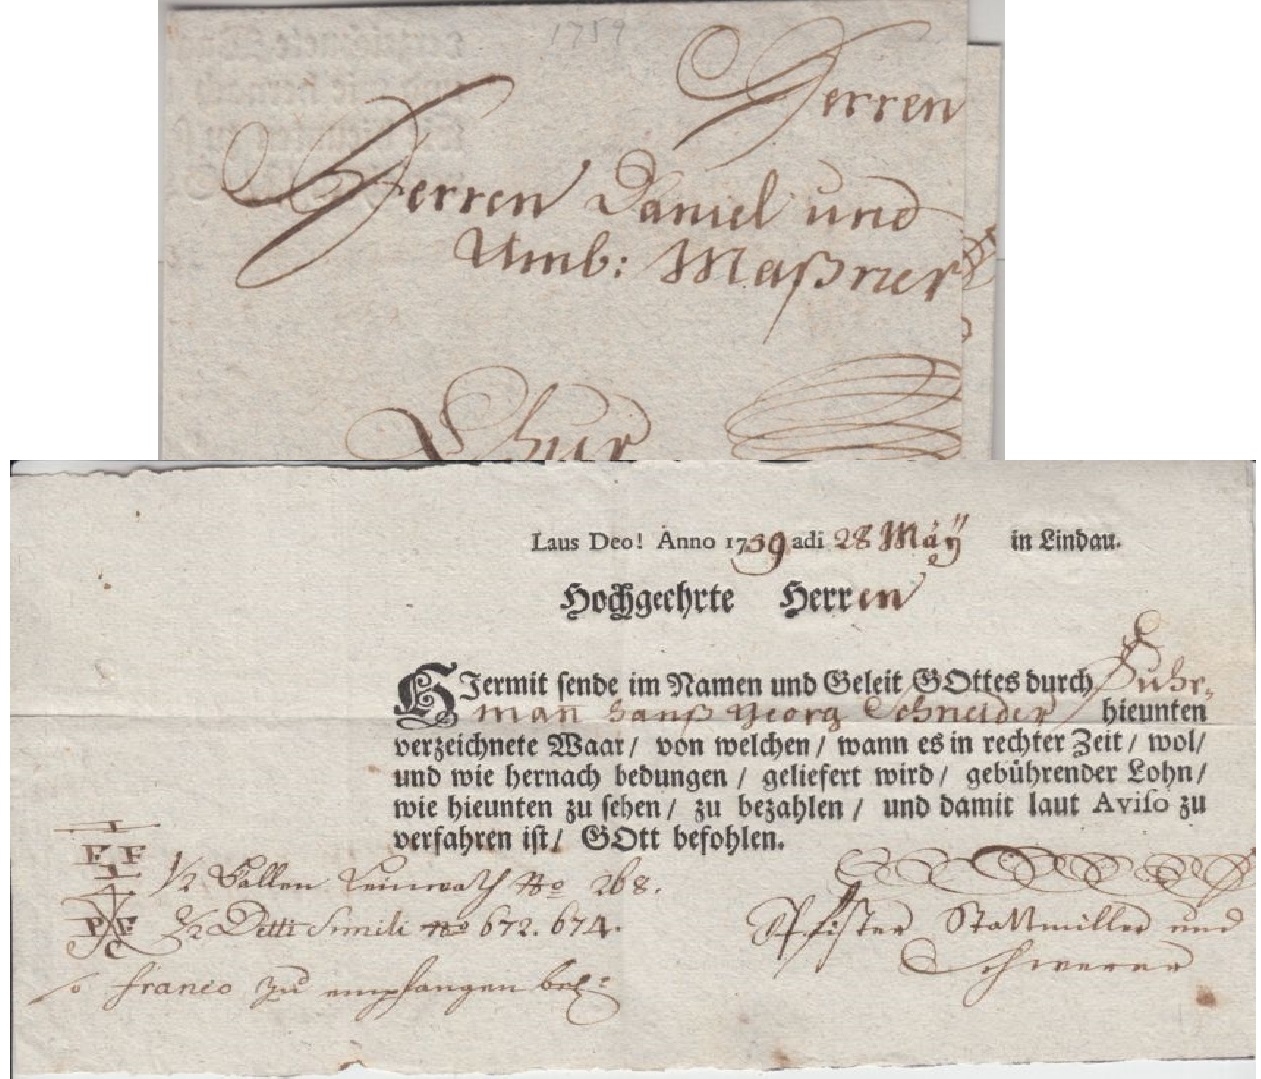 1759
Herren
Herren Daniel und
Amb: Maßner
Chur
Laus Deo! Anno 1759 adi 28 Maÿ in Lindau.
Hochgeehrte Herren
HJermit sende im Namen und Geleit GOttes durch Fuhr-
man Hanß Georg Schneider hieunten
verzeichnete Waar/ von welchen/ wann es in rechter Zeit/ wol/
und wie hernach bedungen / geliefert wird/ gebührender Lohn/
wie hieunten zu sehen/ zu bezahlen/ und damit laut Aviso zu
verfahren ist/ GOtt befohlen.
FF
1/2 Ballen Leinwath No 268.
PF
2/2 Detti Simili No 672. 674.
franco zu empfangen bel:
Pfister Stattmiller und